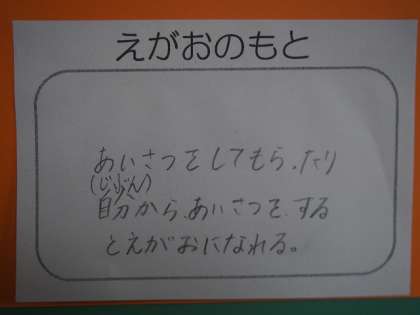 えがおのもと
あいさつをしてもらったり
(じぶん)
自分から、あいさつを、する
とえがおになれる。